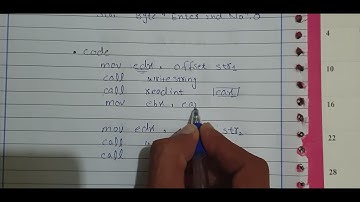 Str2 Byte "Enter 2nd No:", 0
• code
mov edx, offset str1
call writestring
call readint [eax]
mov ebx, ea
mov edx, str2
call
call
14
16
18
20
22